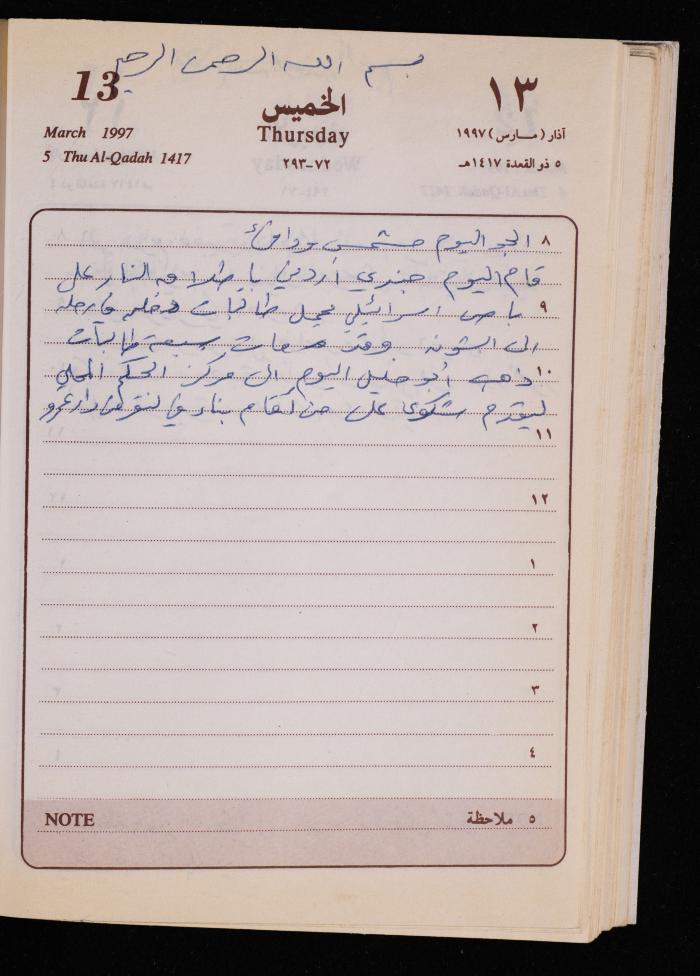 بسم الله الرحمن الرحيم
13
March 1997
5 Thu Al-Qadah 1417
الخميس
Thursday
٧٢-٢٩٣
١٣
آذار (مارس) ١٩٩٧
٥ ذو القعدة ١٤١٧هـ
٨ الجو اليوم مشمس ودافئ
قام اليوم جندي أردني باطلاق النار على
٩ باص اسرائيلي يحمل طالبات في رحله
الى الشونه وقد سبعة طالبات
١٠ ذهب أبو خليل اليوم الى مركز الحكم المحلي
ليقدم شكوى على من أقام بناء دار عمرو
١١
١٢
١
٢
٣
٤
NOTE
٥ ملاحظة